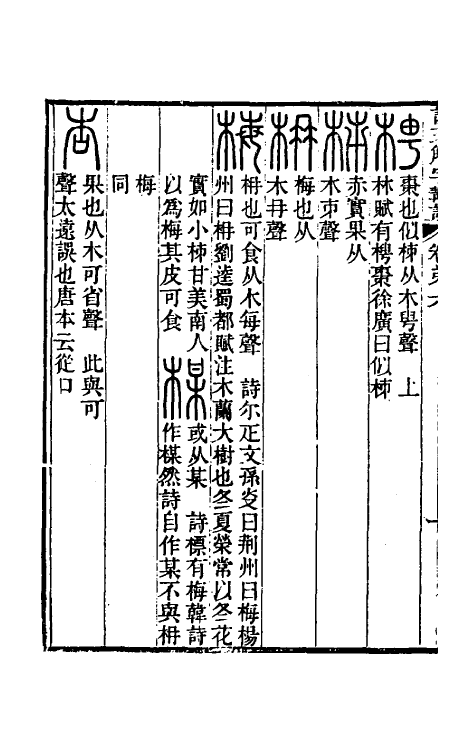 梬 棗也似柿从木甹聲 上
林賦有梬棗徐廣曰似柿
柿 赤實果从
木𠂔聲
枏 梅也从
木冄聲
梅 枏也可食从木每聲 詩尔疋文孫炎曰荆州曰梅楊
州曰枏劉逵蜀都賦注木蘭大樹也冬夏榮常以冬花
實如小柿甘美南人
以爲梅其皮可食
楳 或从某 詩標有梅韓詩
作楳然詩自作某不與枏
梅
同
杏 果也从木可省聲 此與可
聲太遠誤也唐本云從口